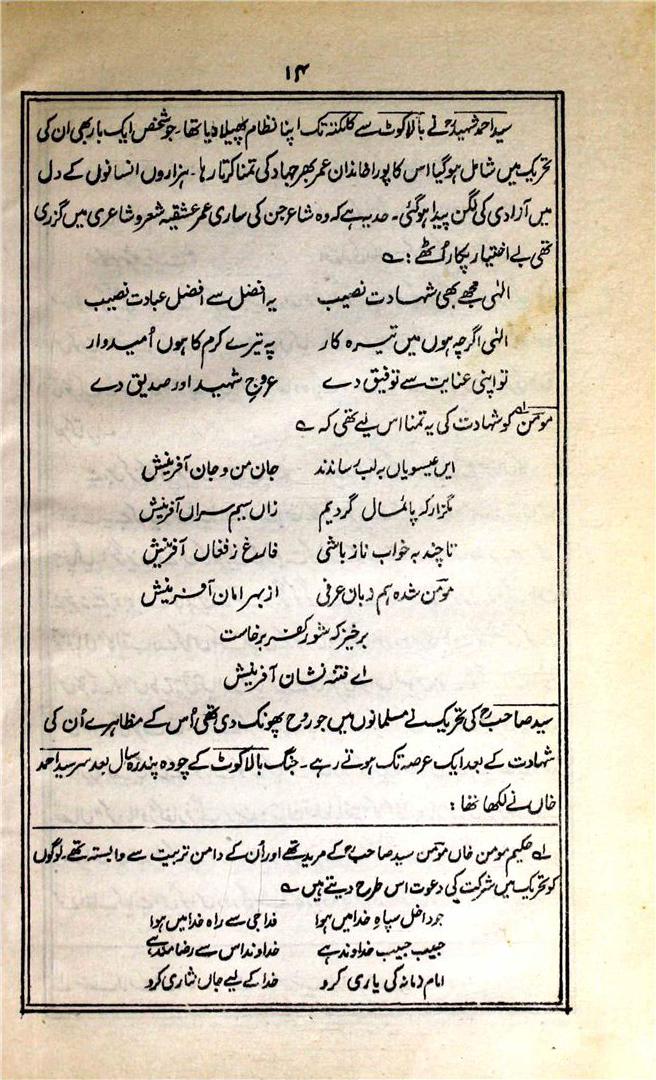 ۱۴
سید احمد شہیدؒ نے بالاکوٹ سے کلکتہ تک اپنا نظام پھیلا دیا تھا۔ جو شخص ایک بار بھی ان کی
تحریک میں شامل ہو گیا اس کا پورا خاندان عمر بھر جہاد کی تمنا کرتا رہا۔ ہزاروں انسانوں کے دل
میں آزادی کی لگن پیدا ہو گئی۔ حد یہ ہے کہ وہ شاعر جن کی ساری عمر عشقیہ شعر و شاعری میں گزری
تھی بے اختیار پکار اُٹھے : ؎
الٰہی مجھے بھی شہادت نصیب یہ افضل سے افضل عبادت نصیب
الٰہی اگرچہ ہوں میں تیرہ کار پہ تیرے کرم کا ہوں اُمیدوار
تو اپنی عنایت سے توفیق دے عروجِ شہید اور صدیق دے
مومنؔ کو شہادت کی یہ تمنا اس لیے تھی کہ ؎
ایں عیسویاں بہ لب رساندند جان من و جان آفرینش
مگزار کہ پائمال گردیم زاں سیم سراں آفرینش
تا چند بہ خواب ناز باشی فارغ ز فغاں آفرینش
مومن شدہ ہم زبان عرفی از بہر امان آفرینش
برخیز کہ شور کفر برخاست
اے فتنہ نشان آفرینش
سید صاحبؒ کی تحریک نے مسلمانوں میں جو روح پھونک دی تھی اُس کے مظاہرے اُن کی
شہادت کے بعد ایک عرصہ تک ہوتے رہے۔ جنگ بالاکوٹ کے چودہ پندرہ سال بعد سر سید احمد
خاں نے لکھا تھا :
لے حکیم مومن خاں مومنؔ سید صاحبؒ کے مرید تھے اور اُن کے دامن تربیت سے وابستہ تھے۔ لوگوں
کو تحریک میں شرکت کی دعوت اس طرح دیتے ہیں ؎
جو داخل سپاہِ خدا میں ہوا فدا جی سے راہ خدا میں ہوا
حبیب حبیب خداوند ہے خداوند اس سے رضامند ہے
امام زمانہ کی یاری کرو خدا کے لیے جاں نثاری کرو